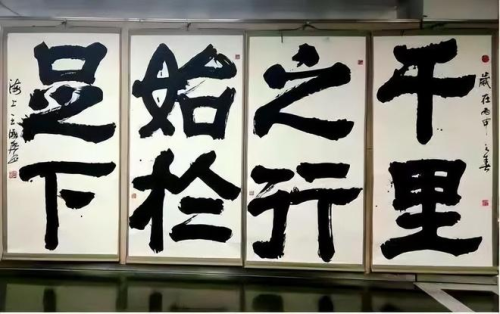 歲在丙申之
千里
之行
始於
足下
海上王